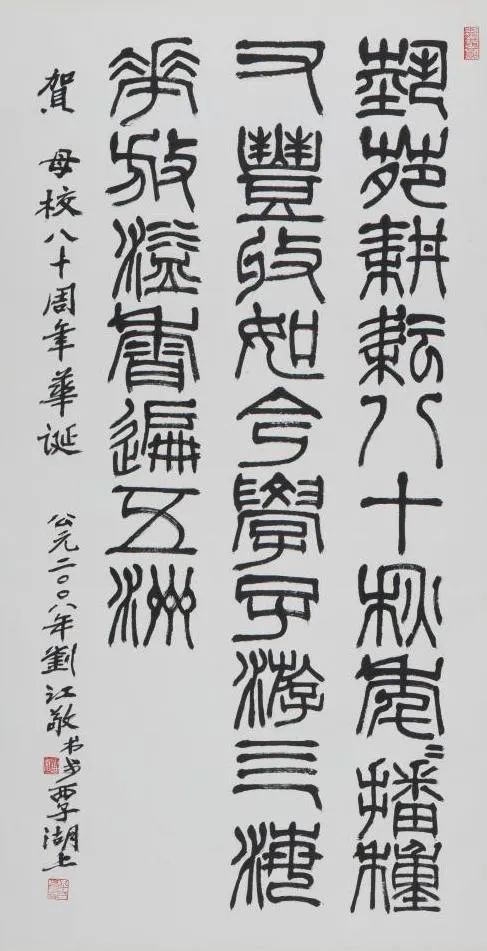 藝苑耕耘八十秋年〻播種
又豐收如今學子游三海
花放溢香遍五洲
賀 母校八十周年華誕 公元二〇〇八年劉江敬书於西子湖上